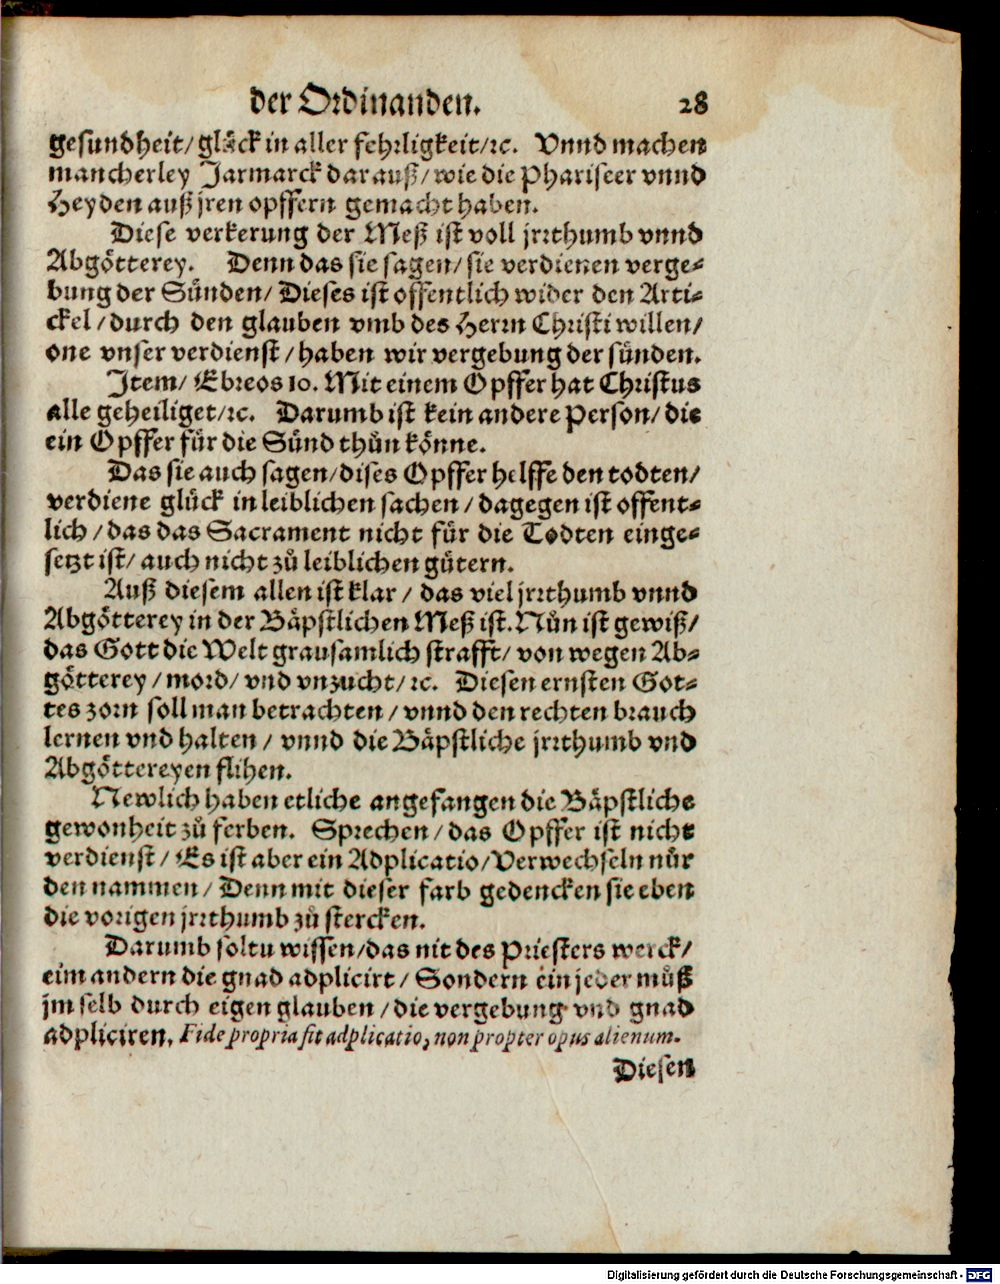 der Ordinanden. 28
gesundheit/ glück in aller fehrligkeit/ꝛc. Vnnd machen
mancherley Jarmarck darauß/ wie die Phariseer vnnd
Heyden auß jren opffern gemacht haben.
Diese verkerung der Meß ist voll jrrthumb vnnd
Abgötterey. Denn das sie sagen/ sie verdienen verge⸗
bung der Sünden/ Dieses ist offentlich wider den Arti⸗
ckel/ durch den glauben vmb des Herrn Christi willen/
one vnser verdienst/ haben wir vergebung der sünden.
Item/ Ebreos 10. Mit einem Opffer hat Christus
alle geheiliget/ꝛc. Darumb ist kein andere Person/ die
ein Opffer für die Sünd thůn könne.
Das sie auch sagen/ dises Opffer helffe den todten/
verdiene glück in leiblichen sachen/ dagegen ist offent⸗
lich/ das das Sacrament nicht für die Todten einge⸗
setzt ist/ auch nicht zů leiblichen gütern.
Auß diesem allen ist klar/ das viel jrrthumb vnnd
Abgötterey in der Bäpstlichen Meß ist. Nůn ist gewiß/
das Gott die Welt grausamlich strafft/ von wegen Ab⸗
götterey/ mord/ vnd vnzucht/ꝛc. Diesen ernsten Got⸗
tes zorn soll man betrachten/ vnnd den rechten brauch
lernen vnd halten/ vnnd die Bäpstliche jrrthumb vnd
Abgöttereyen flihen.
Newlich haben etliche angefangen die Bäpstliche
gewonheit zů ferben. Sprechen/ das Opffer ist nicht
verdienst/ Es ist aber ein Adplicatio/ Verwechseln nůr
den nammen/ Denn mit dieser farb gedencken sie eben
die vorigen jrrthumb zů stercken.
Darumb soltu wissen/ das nit des Priesters werck/
eim andern die gnad adplicirt/ Sondern ein jeder můß
jm selb durch eigen glauben/ die vergebung vnd gnad
adpliciren, Fide propria fit adplicatio, non propter opus alienum.
Diesen
Digitalisierung gefördert durch die Deutsche Forschungsgemeinschaft - DFG